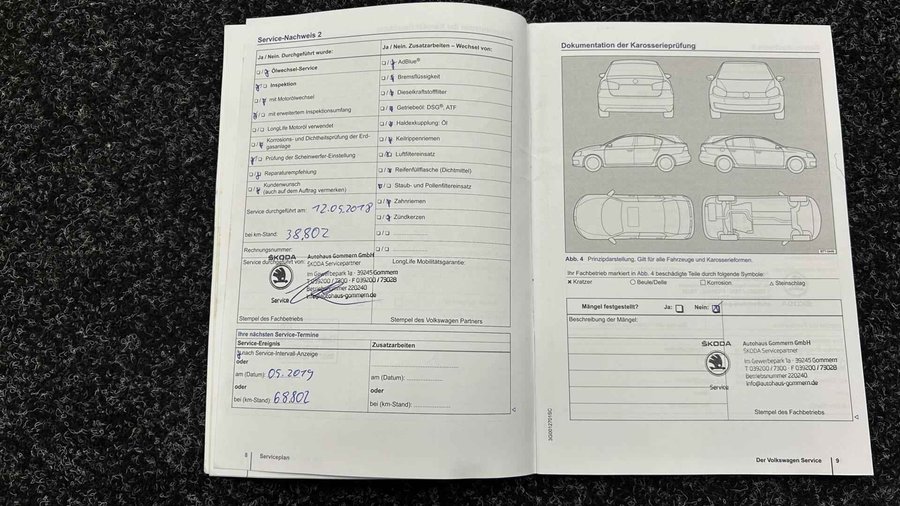 Service-Nachweis 2
Ja / Nein. Durchgeführt wurde:
Ölwechsel-Service
Inspektion
mit Motorölwechsel
mit erweitertem Inspektionsumfang
LongLife Motoröl verwendet
Korrosions- und Dichtheitsprüfung der Erd-
gasanlage
Prüfung der Scheinwerfer-Einstellung
Reparaturempfehlung
Kundenwunsch
(auch auf dem Auftrag vermerken)
Service durchgeführt am: 12.05.2018
bei km-Stand: 38.802
Rechnungsnummer:
Service durchgeführt von:
ŠKODA
Autohaus Gommern GmbH
ŠKODA Servicepartner
Im Gewerbepark 1a · 39245 Gommern
T 039200 / 7300 · F 039200 / 73028
Betriebsnummer 220240
info@autohaus-gommern.de
Service
Stempel des Fachbetriebs
Ja / Nein. Zusatzarbeiten – Wechsel von:
AdBlue®
Bremsflüssigkeit
Dieselkraftstofffilter
Getriebeöl: DSG®, ATF
Haldexkupplung: Öl
Keilrippenriemen
Luftfiltereinsatz
Reifenfüllflasche (Dichtmittel)
Staub- und Pollenfiltereinsatz
Zahnriemen
Zündkerzen
LongLife Mobilitätsgarantie:
Stempel des Volkswagen Partners
Ihre nächsten Service-Termine
Service-Ereignis
nach Service-Intervall-Anzeige
oder
am (Datum): 05.2019
oder
bei (km-Stand): 68.802
Zusatzarbeiten
am (Datum):
oder
bei (km-Stand):
8 Serviceplan
Dokumentation der Karosserieprüfung
Abb. 4 Prinzipdarstellung. Gilt für alle Fahrzeuge und Karosserieformen.
Ihr Fachbetrieb markiert in Abb. 4 beschädigte Teile durch folgende Symbole:
× Kratzer ○ Beule/Delle □ Korrosion △ Steinschlag
Mängel festgestellt? Ja: Nein:
Beschreibung der Mängel:
ŠKODA
Autohaus Gommern GmbH
ŠKODA Servicepartner
Im Gewerbepark 1a · 39245 Gommern
T 039200 / 7300 · F 039200 / 73028
Betriebsnummer 220240
info@autohaus-gommern.de
Service
Stempel des Fachbetriebs
3G0012701SC
Der Volkswagen Service 9